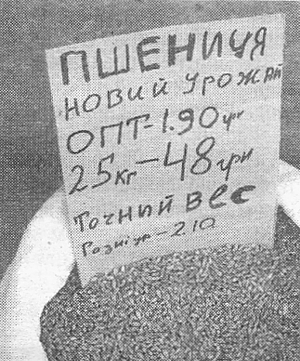 ПШЕНИЦЯ
НОВИЙ УРОЖАЙ
ОПТ-1.90 грн
25кг-48грн
Точний вес
Розніця-2.10